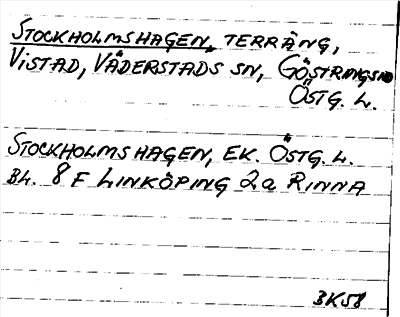 STOCKHOLMSHAGEN, TERRÄNG,
VISTAD, VÄDERSTADS SN, GÖSTRINGS HD
ÖSTG. L.
STOCKHOLMSHAGEN, EK. ÖSTG. L.
BL. 8 F LINKÖPING 2a RINNA
3K58